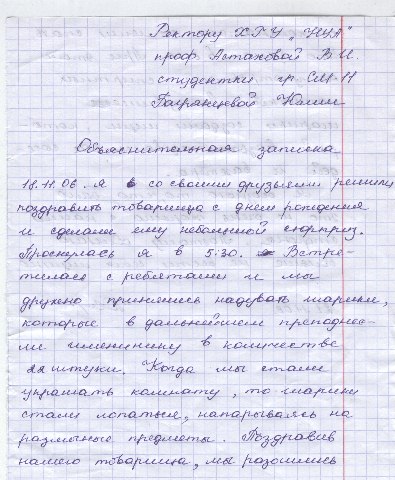 Ректору ХГУ „НУА"
проф. Астаховой В.И.
студентки гр. СМ-11
Объяснительная записка
18.11.06. Я со своими друзьями решили
поздравить товарища с днем рождения
и сделать ему небольшой сюрприз.
Проснулась я в 5:30. Встре-
тилась с ребятами и мы
дружно принялись надувать шарики,
которые в дальнейшем преподнес-
ли имениннику в количестве
22 штуки. Когда мы стали
украшать комнату, то шарики
стали лопаться, напарываясь на
различные предметы. Поздравив
нашего товарища, мы разошлись